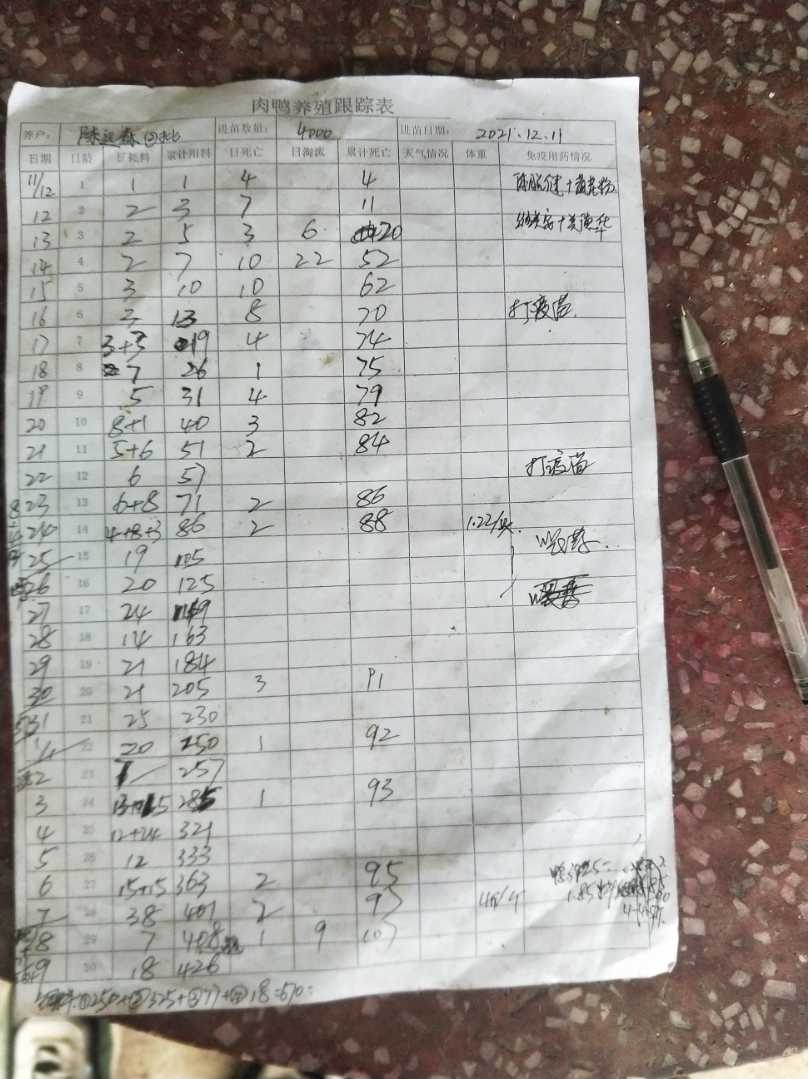 肉鸭养殖跟踪表
养户： 进苗数量： 4000 进苗日期： 2021.12.11
日期 日龄 日耗料 累计用料 日死亡 日淘汰 累计死亡 天气情况 体重 免疫用药情况
11/12 1 1 1 4 4
12 2 2 3 7 11
13 3 2 5 3 6 20
14 4 2 7 10 22 52
15 5 3 10 10 62
16 6 3 13 8 70 打疫苗
17 7 3+3 19 4 74
18 8 7 26 1 75
19 9 5 31 4 79
20 10 8+1 40 3 82
21 11 5+6 51 2 84
22 12 6 57 打疫苗
23 13 6+8 71 2 86
24 14 4+8+3 86 2 88 1.22/
25 15 19 105
26 16 20 125
27 17 24 149
28 18 14 163
29 19 21 184
30 20 21 205 3 91
31 21 25 230
1/1 22 20 250 1 92
2 23 7 257
3 24 13+15 285 1 93
4 25 12+24 321
5 26 12 333
6 27 15+15 363 2 95
7 28 38 401 2 97
8 29 7 408 1 9 107
9 30 18 426
①250+②325+③77+④18=670